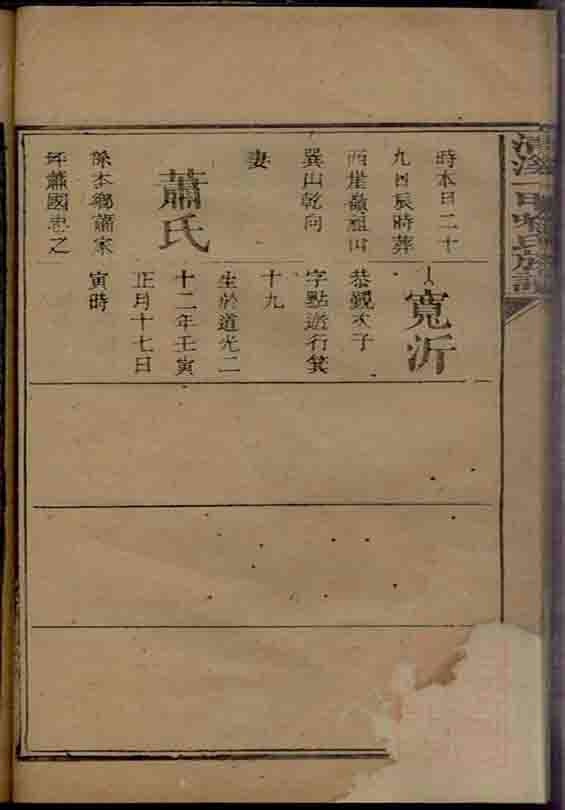 時本日二十
九日辰時葬
西崖嶺祖山
巽山乾向
妻
蕭氏
係本鄉蕭家
坪蕭國忠之
寬沂
恭觀次子
字點透行箕
十九
生於道光二
十二年壬寅
正月十七日
寅時
氏族譜